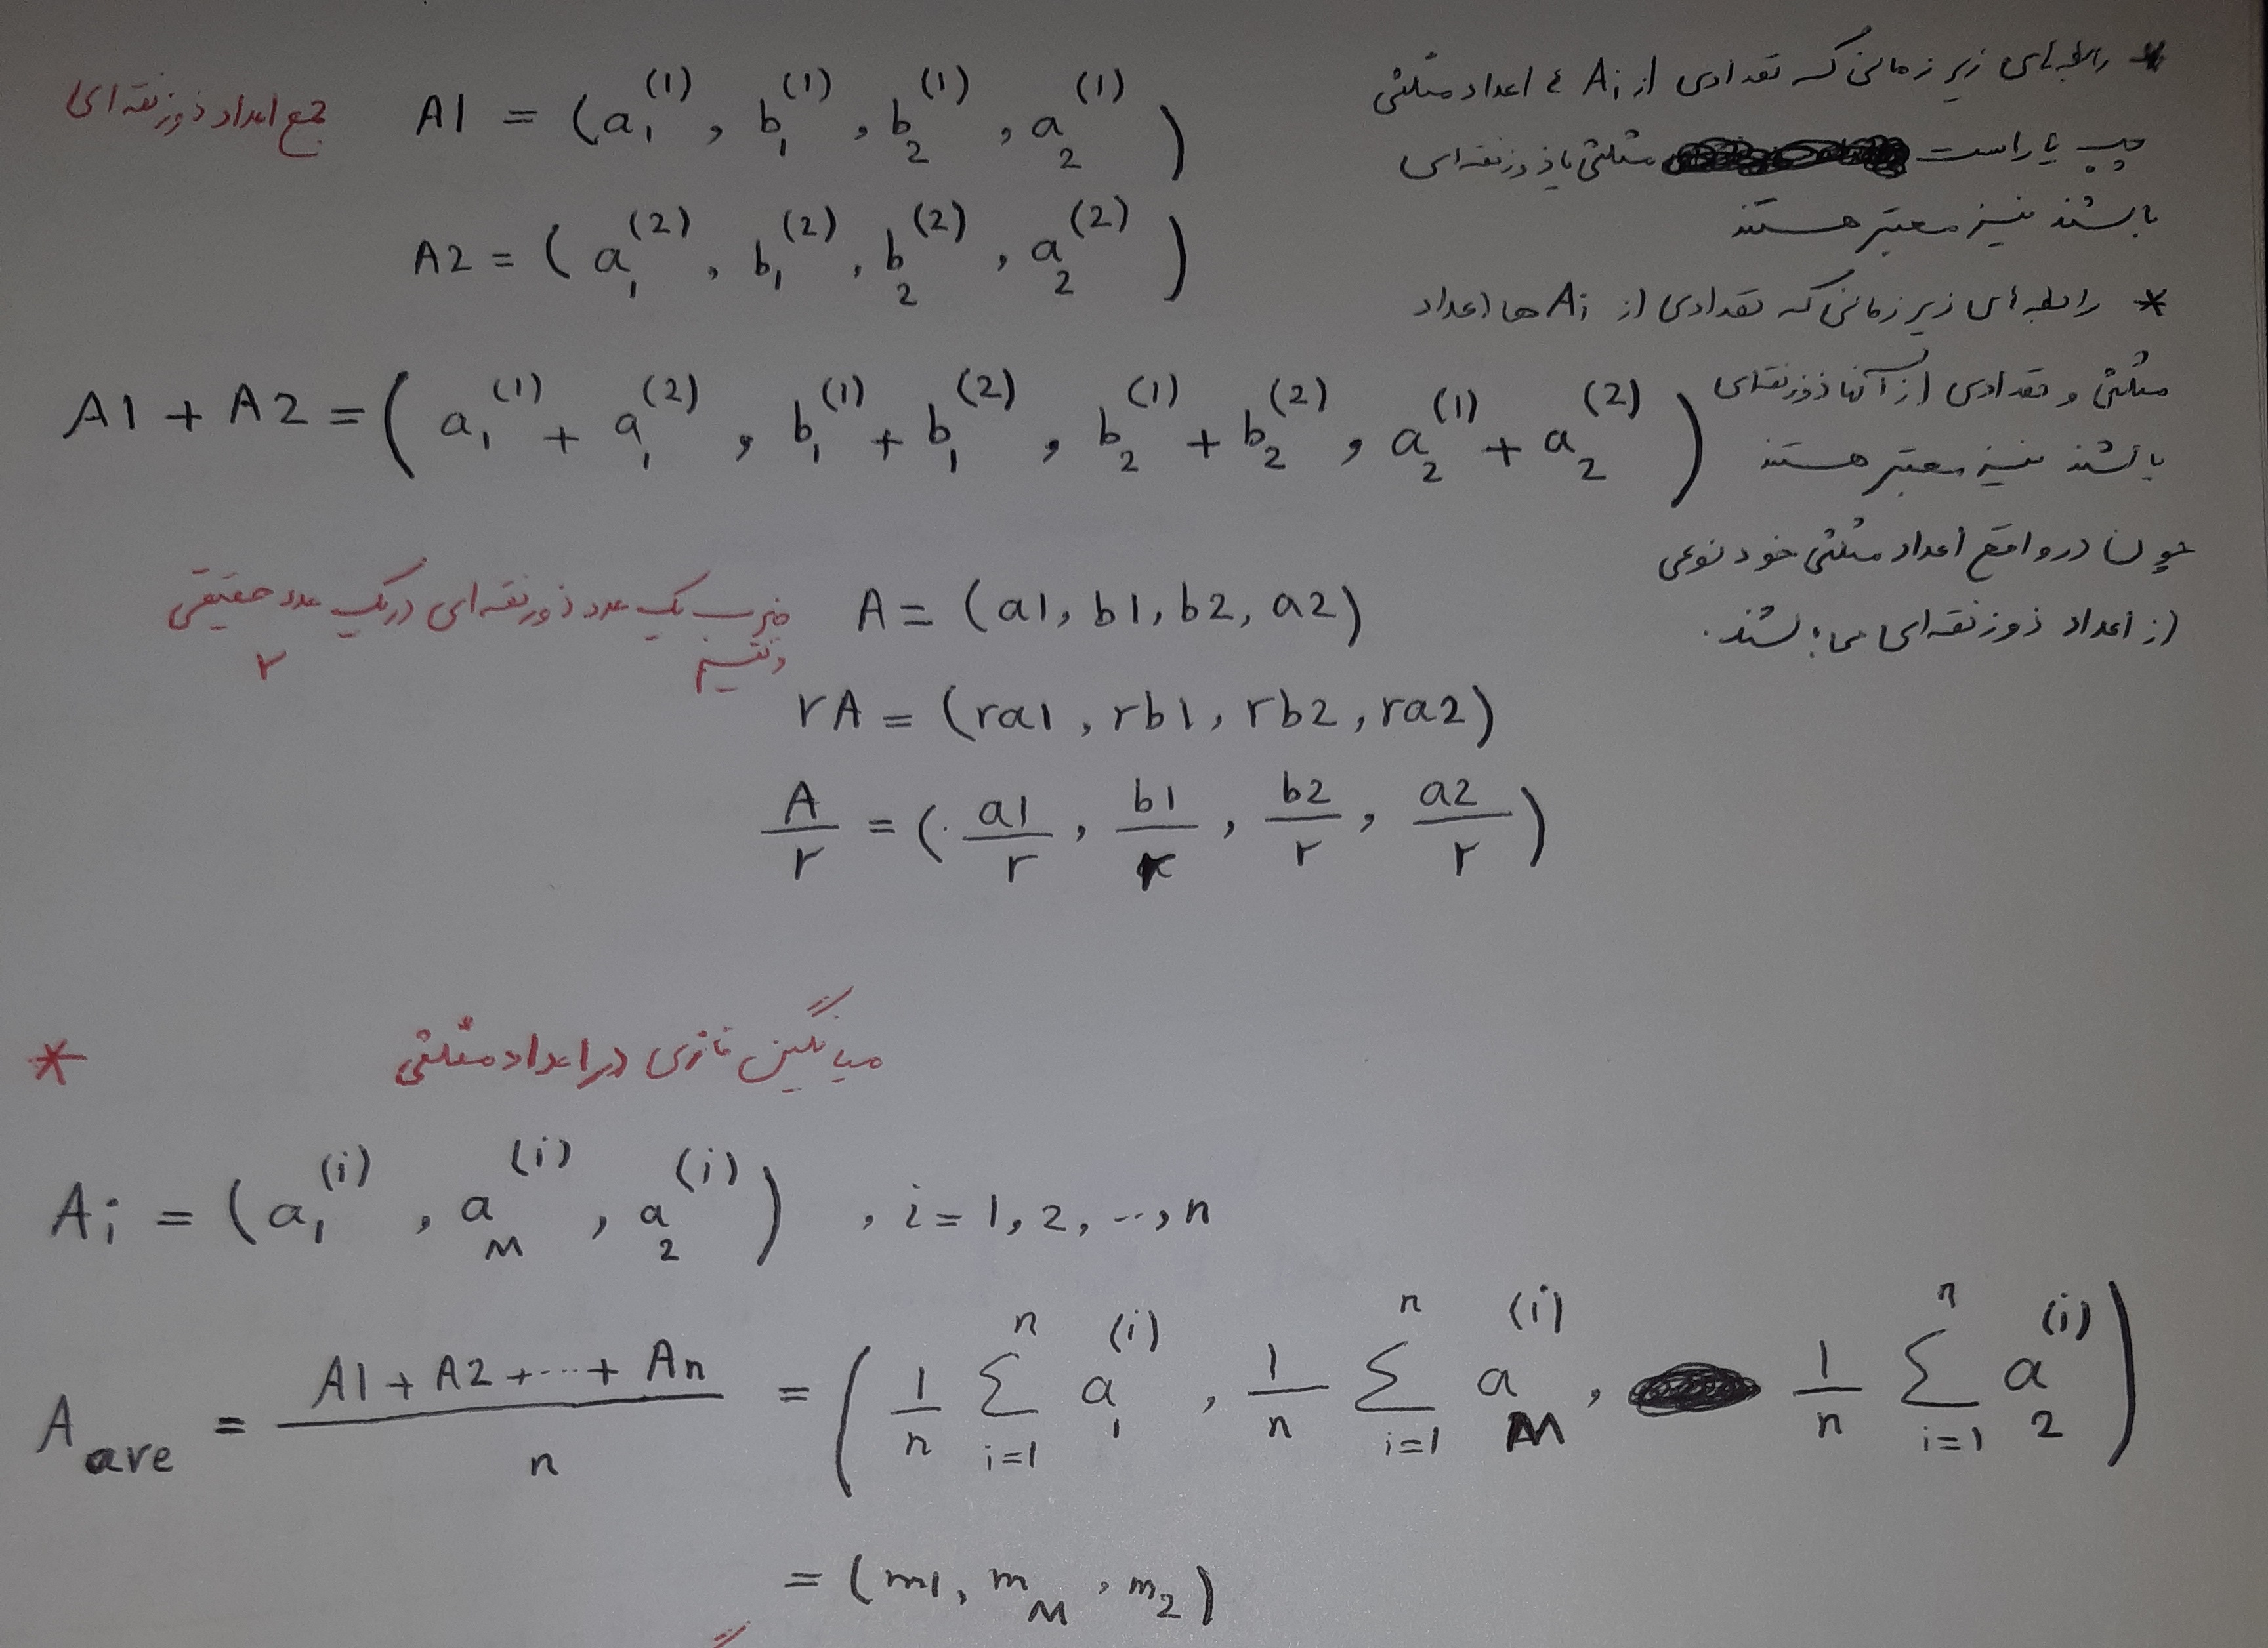 جمع اعداد ذوزنقه ای
A1 = (a₁⁽¹⁾, b₁⁽¹⁾, b₂⁽¹⁾, a₂⁽¹⁾)
A2 = (a₁⁽²⁾, b₁⁽²⁾, b₂⁽²⁾, a₂⁽²⁾)
A1 + A2 = (a₁⁽¹⁾ + a₁⁽²⁾, b₁⁽¹⁾ + b₁⁽²⁾, b₂⁽¹⁾ + b₂⁽²⁾, a₂⁽¹⁾ + a₂⁽²⁾)
* رابطه های زیر زمانی که تعدادی از Ai اعداد مثلثی
چپ یا راست مثلثی یا ذوزنقه ای
باشند نیز معتبر هستند
* رابطه های زیر زمانی که تعدادی از Ai ها اعداد
مثلثی و تعدادی از آنها ذوزنقه ای
باشند نیز معتبر هستند
چون در واقع اعداد مثلثی خود نوعی
از اعداد ذوزنقه ای می باشند.
ضرب یک عدد ذوزنقه ای در یک عدد حقیقی
و تقسیم r
A = (a1, b1, b2, a2)
rA = (ra1, rb1, rb2, ra2)
A/r = (a1/r, b1/r, b2/r, a2/r)
* میانگین فازی در اعداد مثلثی
Ai = (a₁⁽ⁱ⁾, a_M⁽ⁱ⁾, a₂⁽ⁱ⁾), i = 1, 2, ..., n
A_ave = (A1 + A2 + ... + An)/n = (1/n Σ_{i=1}^{n} a₁⁽ⁱ⁾, 1/n Σ_{i=1}^{n} a_M⁽ⁱ⁾, 1/n Σ_{i=1}^{n} a₂⁽ⁱ⁾)
= (m1, m_M, m₂)